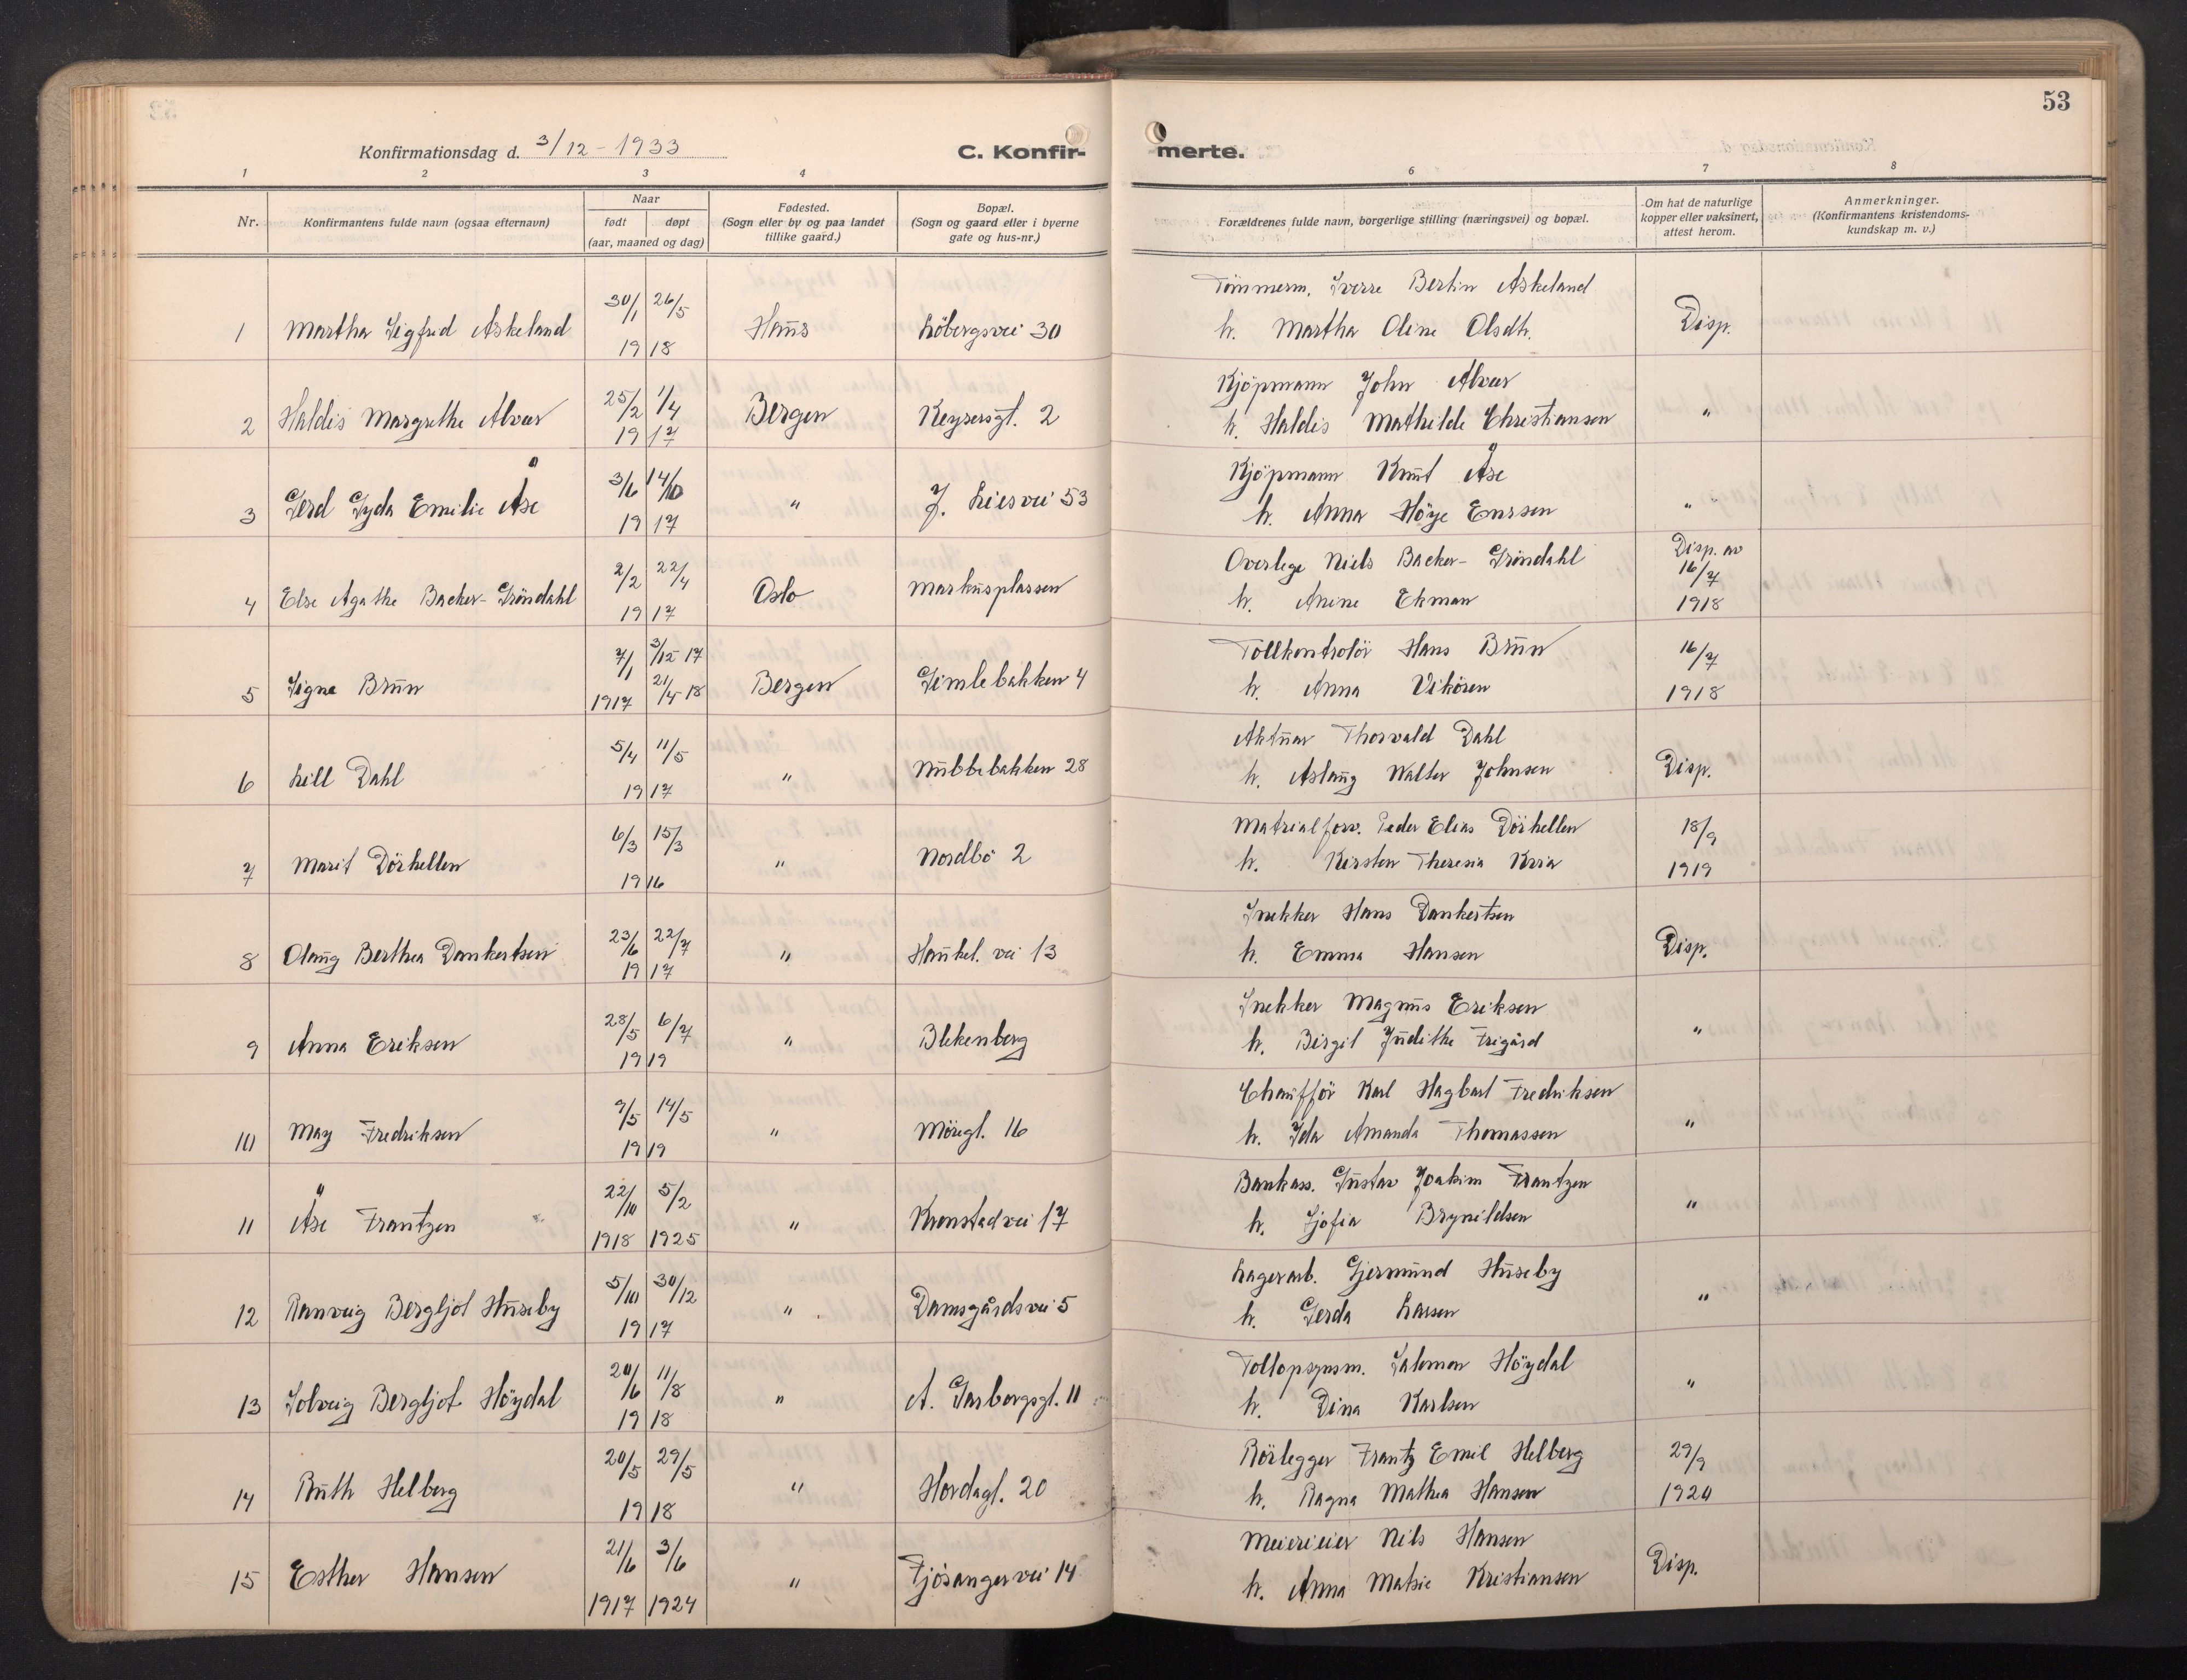 53
Konfirmationsdag d. 3/12 - 1933
C. Konfir-
merte.
1 2 3 4 6 7 8
Nr.
Konfirmantens fulde navn (ogsaa efternavn)
Naar
født døpt
(aar, maaned og dag)
Fødested.
(Sogn eller by og paa landet
tillike gaard.)
Bopæl.
(Sogn og gaard eller i byerne
gate og hus-nr.)
Forældrenes fulde navn, borgerlige stilling (næringsvei) og bopæl.
Om hat de naturlige
kopper eller vaksinert,
attest herom.
Anmerkninger.
(Konfirmantens kristendoms-
kundskap m. v.)
Tömmerm. Sverre Bertin Askeland
30/1 26/5
1 Martha Sigfrid Askeland Haus Löbergsvei 30 h. Martha Oline Olsdtr. Disp.
19 18
Kjöpmann John Alvær
25/2 1/4
2 Haldis Margrethe Alvær Bergen Keysersgt. 2 h. Haldis Mathilde Christiansen "
19 17
Kjöpmann Knut Åse
3/6 14/10
3 Gerd Gyda Emilie Åse " J. Liesvei 53 h. Anna Höye "
19 17
Overlege Niels Backer-Gröndahl Disp. av
2/2 22/4 16/7
4 Else Agathe Backer-Gröndahl Oslo Markusplassen h. Anine Ekman 1918
19 17
Tollkontrolör Hans Brun 16/7
7/1 3/12 17
5 Signe Brun 21/4 18 Bergen Gimlebakken 4 h. Anna Vikören 1918
1917
Aktuar Thorvald Dahl
5/4 11/5
6 Lill Dahl " Nubbebakken 28 h. Aslaug Walter Johnsen Disp.
19 17
Matrialforv. Peder Elias Dörhellen 18/9
6/3 15/3
7 Marit Dörhellen " Nordbö 2 h. Kirsten Theresia 1919
19 16
Snekker Hans Dankertsen
23/6 22/7
8 Olaug Berthea Dankertsen " Haukel. vei 13 h. Emma Hansen Disp.
19 17
Snekker Magnus Eriksen
28/5 6/7
9 Anna Eriksen " Blekenberg h. Birgit Judithe Frigård "
19 19
Chaufför Karl Hagbart Fredriksen
9/5 14/5
10 May Fredriksen " Möregt. 16 h. Ida Amanda Thomassen "
19 19
Bankass. Gustav Joakim Frantzen
22/10 5/2
11 Åse Frantzen " Kronstadvei 17 h. Sjofia Brynildsen "
1918 1925
Lagerarb. Gjermund Huseby
5/10 30/12
12 Ranveig Bergljot Huseby " Damsgårdsvei 5 h. Gerda Larsen "
19 17
Tollopsynsm. Salomon Höydal
20/6 11/8
13 Solveig Bergljot Höydal " A. Garborgsgt. 11 h. Dina Karlsen "
19 18
Rörlegger Frantz Emil Helberg 29/9
20/5 29/5
14 Ruth Helberg " Hordagt. 20 h. Ragna Mathea Hansen 1920
19 18
Meierieier Nils Hansen
21/6 3/6
15 Esther Hansen " Fjösangervei 14 h. Anna Matsie Kristiansen Disp.
1917 1924